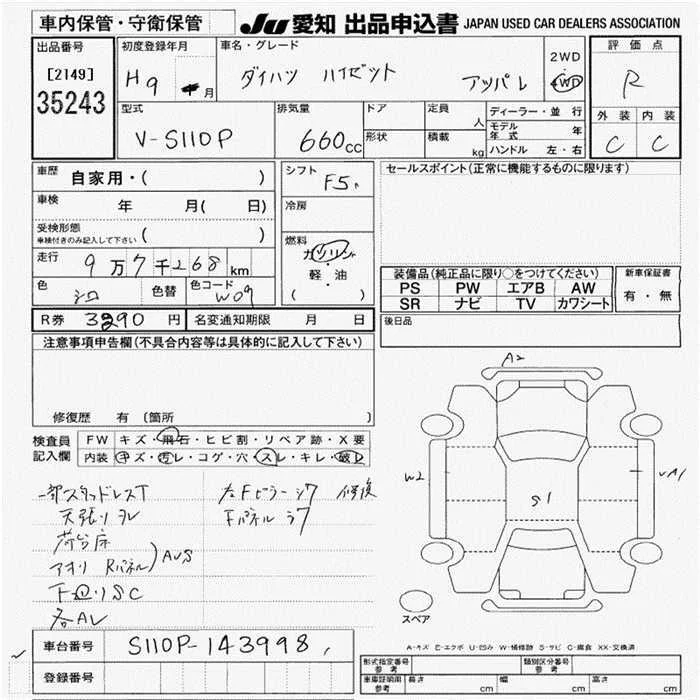 車内保管・守衛保管
JU 愛知 出品申込書 JAPAN USED CAR DEALERS ASSOCIATION
出品番号
[2149]
35243
初度登録年月
H9 月
車名・グレード
ダイハツ ハイゼット アッパレ
2WD
4WD
評価点
R
外装 内装
C C
型式
V-S110P
排気量
660cc
ドア
形状
定員 人
積載 kg
ディーラー・並行
モデル年式 年
ハンドル 左・右
車歴 自家用・( )
車検 年 月( 日)
受検形態
車検付きのみ記入して下さい ( )
走行 9万7千268km
色 シロ 色替 色コード W09
シフト F5
冷房
燃料
ガソリン
軽・油
( )
セールスポイント(正常に機能するものに限ります)
装備品(純正品に限り○をつけてください)
PS PW エアB AW
SR ナビ TV カワシート
新車保証書
有・無
R券 3290円 名変通知期限 月 日
後日品
注意事項申告欄(不具合内容等は具体的に記入して下さい)
修復歴 有 〔箇所 〕
検査員記入欄
FW キズ・飛石・ヒビ割・リペア跡・X要
内装 キズ・汚レ・コゲ・穴・スレ・キレ・破レ
一部スタッドレスT
天張りヨレ
荷台床
アオリ Rパネル) AUS
下廻りSC
各AU
左Fピラーシワ 修復
Fパネルシワ
A2
W2
S1
A1
スペア
A-キズ E-エクボ U-凹み W-補修跡 S-サビ C-腐食 XX-交換済
車台番号 S110P-143998
登録番号
形式指定番号 参考
類別区分番号 参考
車庫証明用 参考
長さ cm
幅 cm
高さ cm